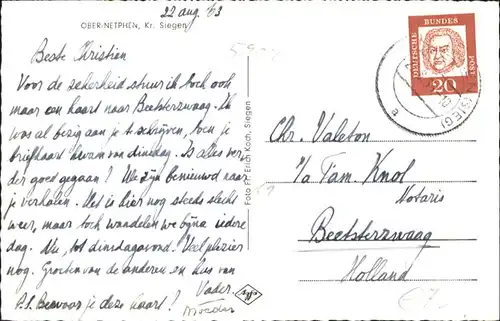 22 aug. 63
OBER-NETPHEN, Kr. Siegen
Beste Christien
Voor de zekerheid stuur ik toch ook
maar een kaart naar Beetsterzwaag. Ik
was al bezig aan je te schrijven, toen je
briefkaart kwam van dinsdag. Is alles ver-
der goed gegaan? We zijn benieuwd naar
je verhalen. Het is hier nog steeds slecht
weer, maar toch wandelen we bijna iedere
dag. Nu, tot dinsdagavond. Veel plezier
nog. Groeten van de anderen en kus van
Vader.
Moeder
P.S. Bewaar je deze kaart!
Foto Fr. Erich Koch, Siegen
effs
DEUTSCHE BUNDESPOST
20
(SIEG)
e
Chr. Valeton
p/a Fam. Knol
Notaris
Beetsterzwaag
Holland